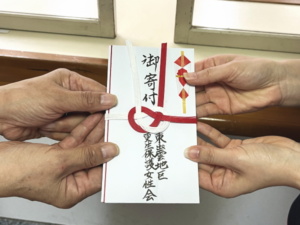 御寄付
東雲地区
更生保護女性会